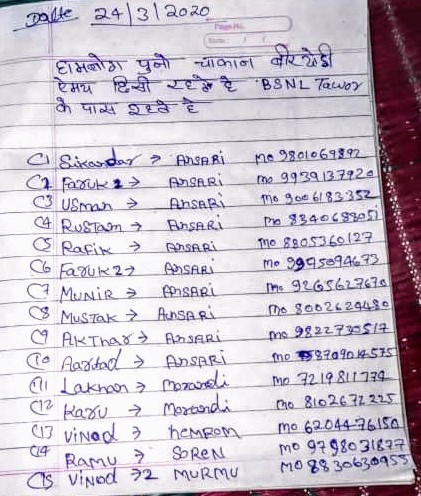 Date 24/3/2020
Page No.
Date: / /
हामलोग पुनो चाकान
रहते है BSNL Tawor
के पास रहते है
C1 Sikandar → ANSARi mo 9801069892
C2 Faruk 2 → ANSARi mo 9939137920
C3 USman → ANSARi mo 9006183352
C4 RUSTam → ANSARi mo 8340688051
C5 Rafik → ANSARi mo 8805360127
C6 Faruk 2 → ANSARi mo 9995094673
C7 MUNiR → ANSARi mo 9265627670
C8 MUSTAK → ANSARi mo 8002624480
C9 AKThar → ANSARi mo 9822730517
C10 → ANSARi mo 8709014575
C11 Lakhan → Marandi mo 7219811774
C12 Karu → Marandi mo 8102672225
C13 ViNod → hEMROM mo 6204476150
C14 RAMU → SOREN mo 9798031877
C15 ViNod →2 MURMU mo 8830630955